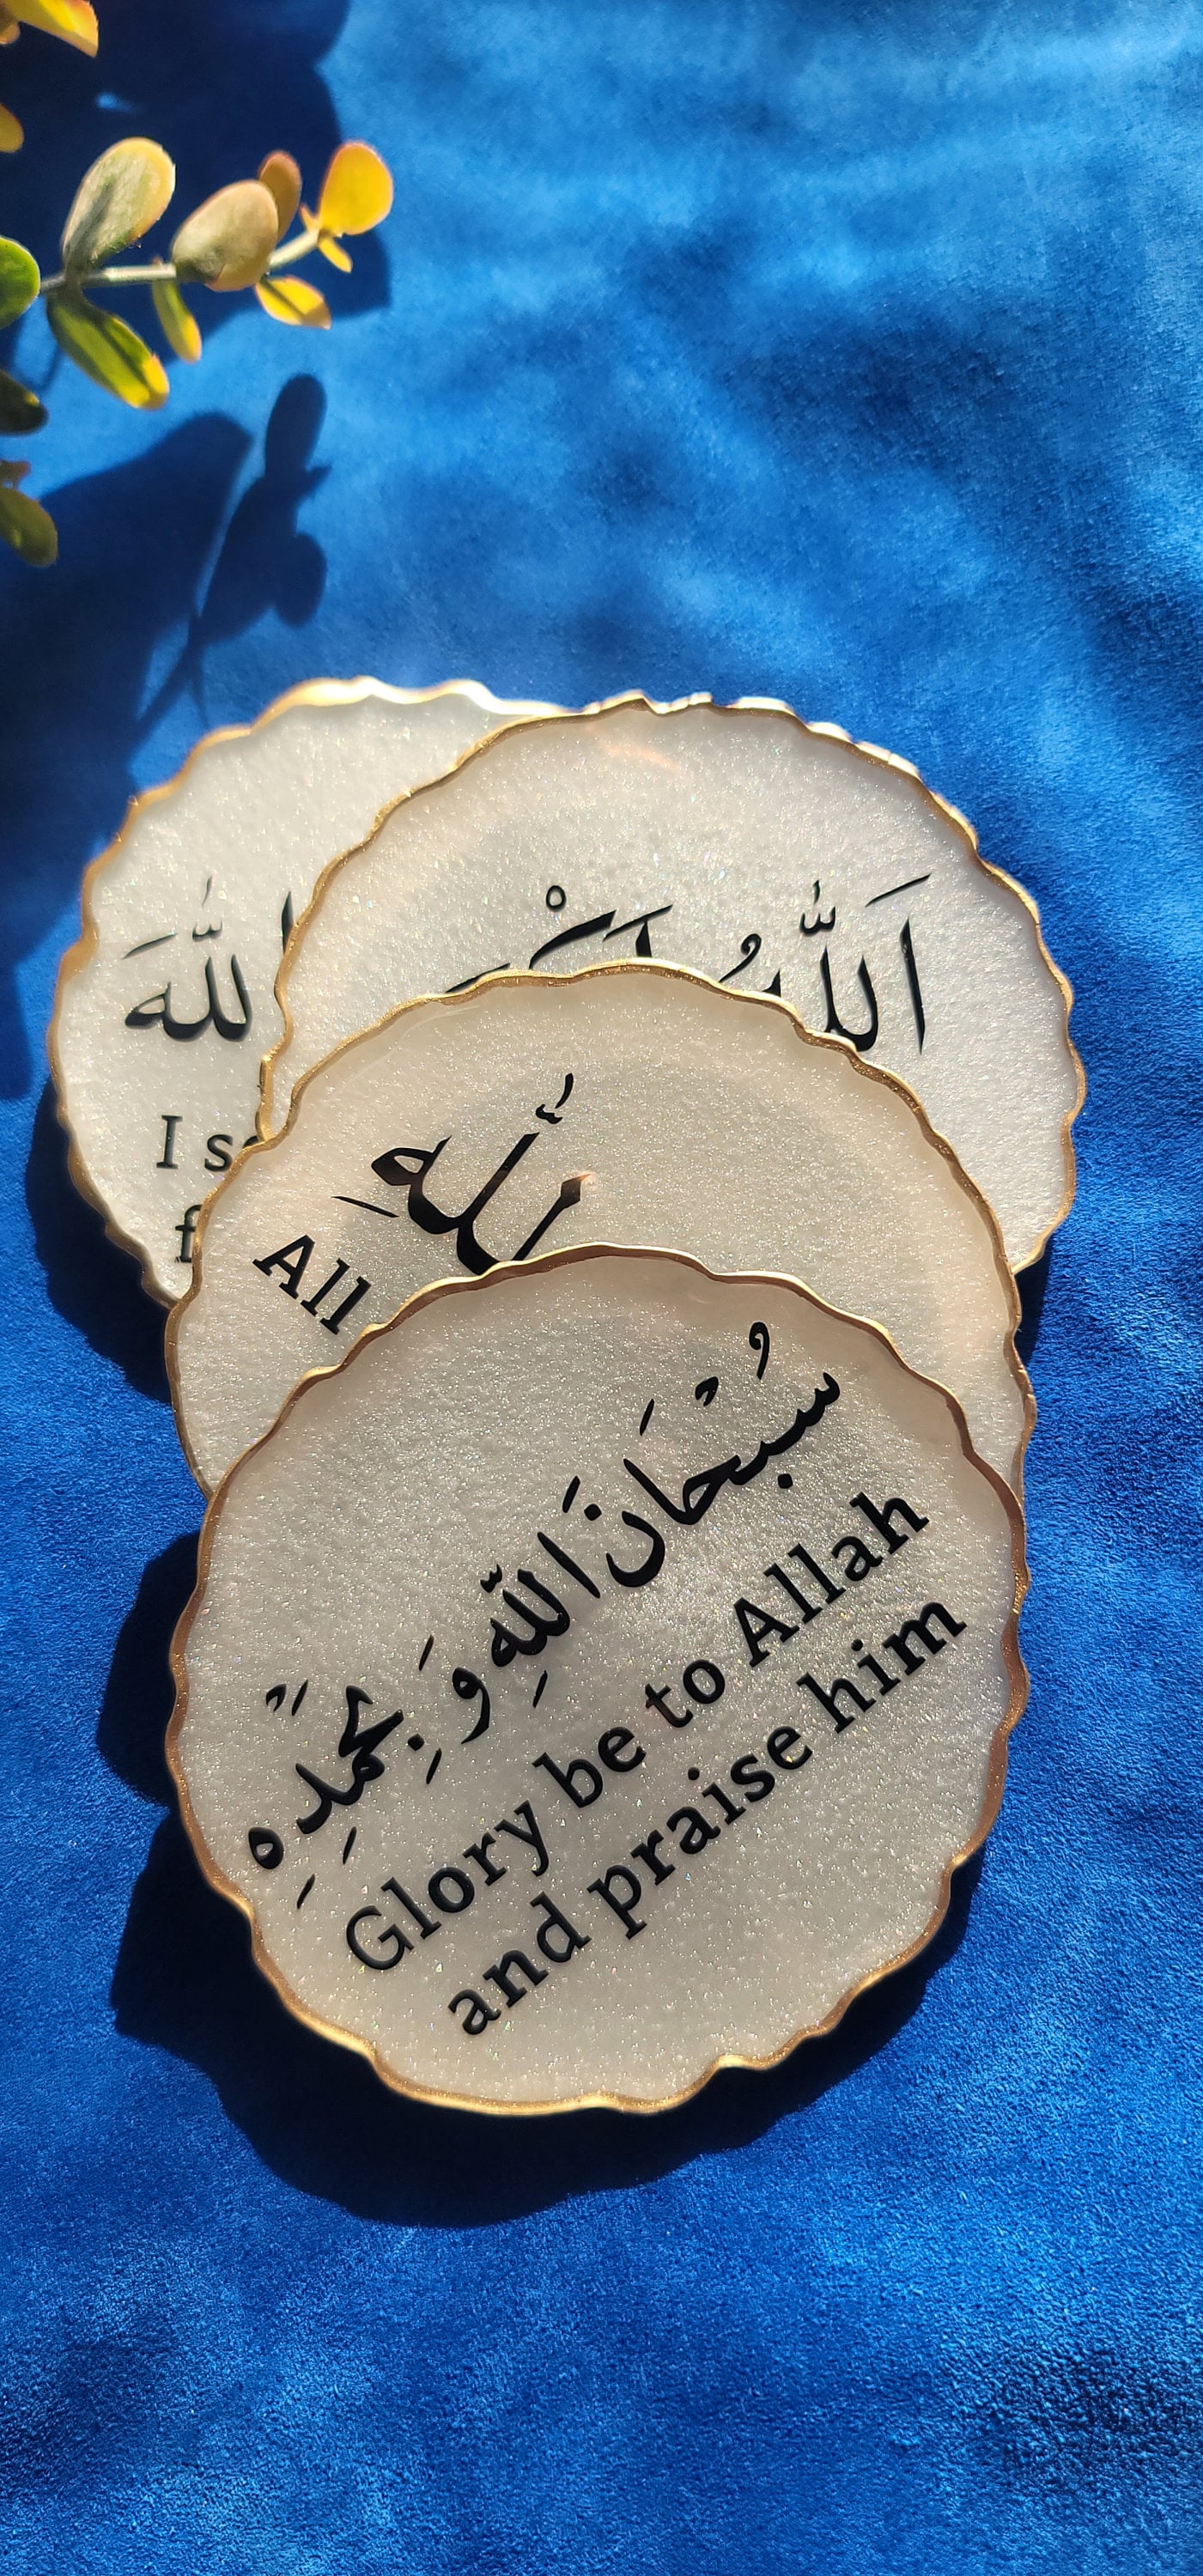 اللهَ
I
اَللّٰهُ
لِلّٰهِ
All
سُبْحَانَ اللّٰهِ وَ بِحَمْدِهِ
Glory be to Allah
and praise him